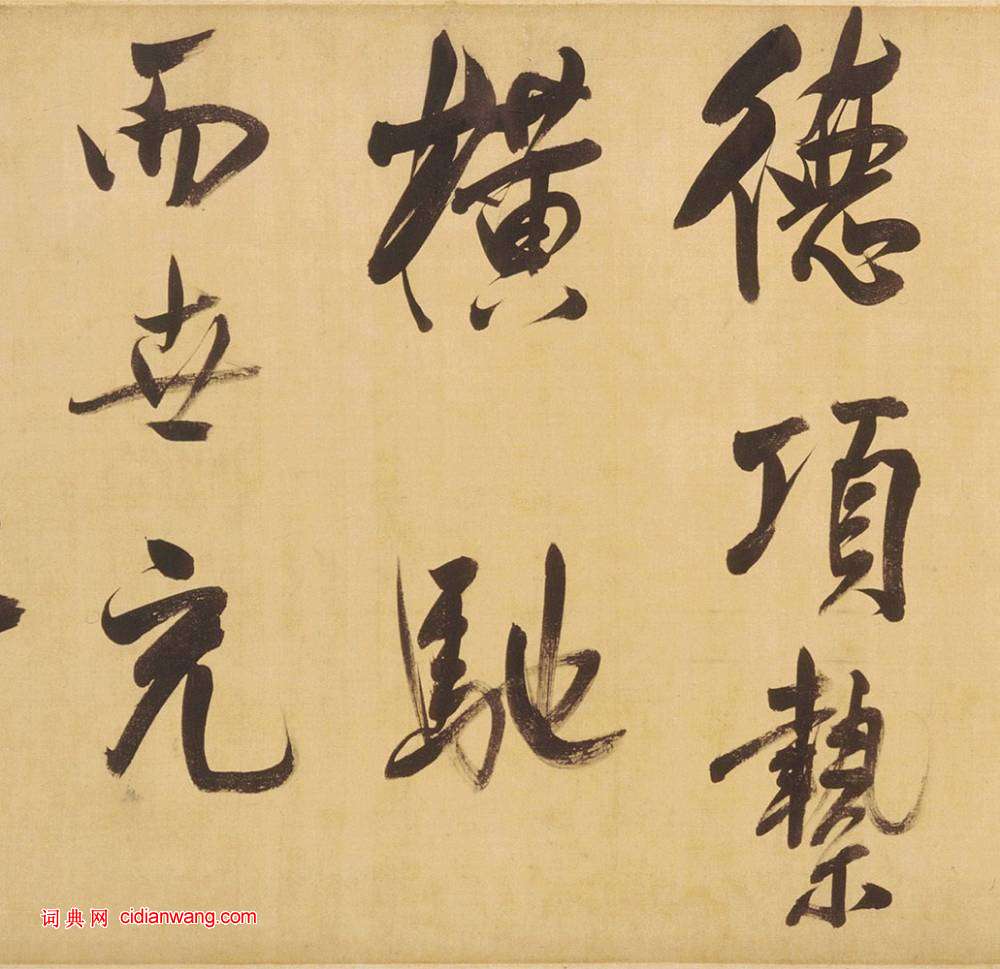 德項縶
橫馳
而世充
词典网 cidianwang.com